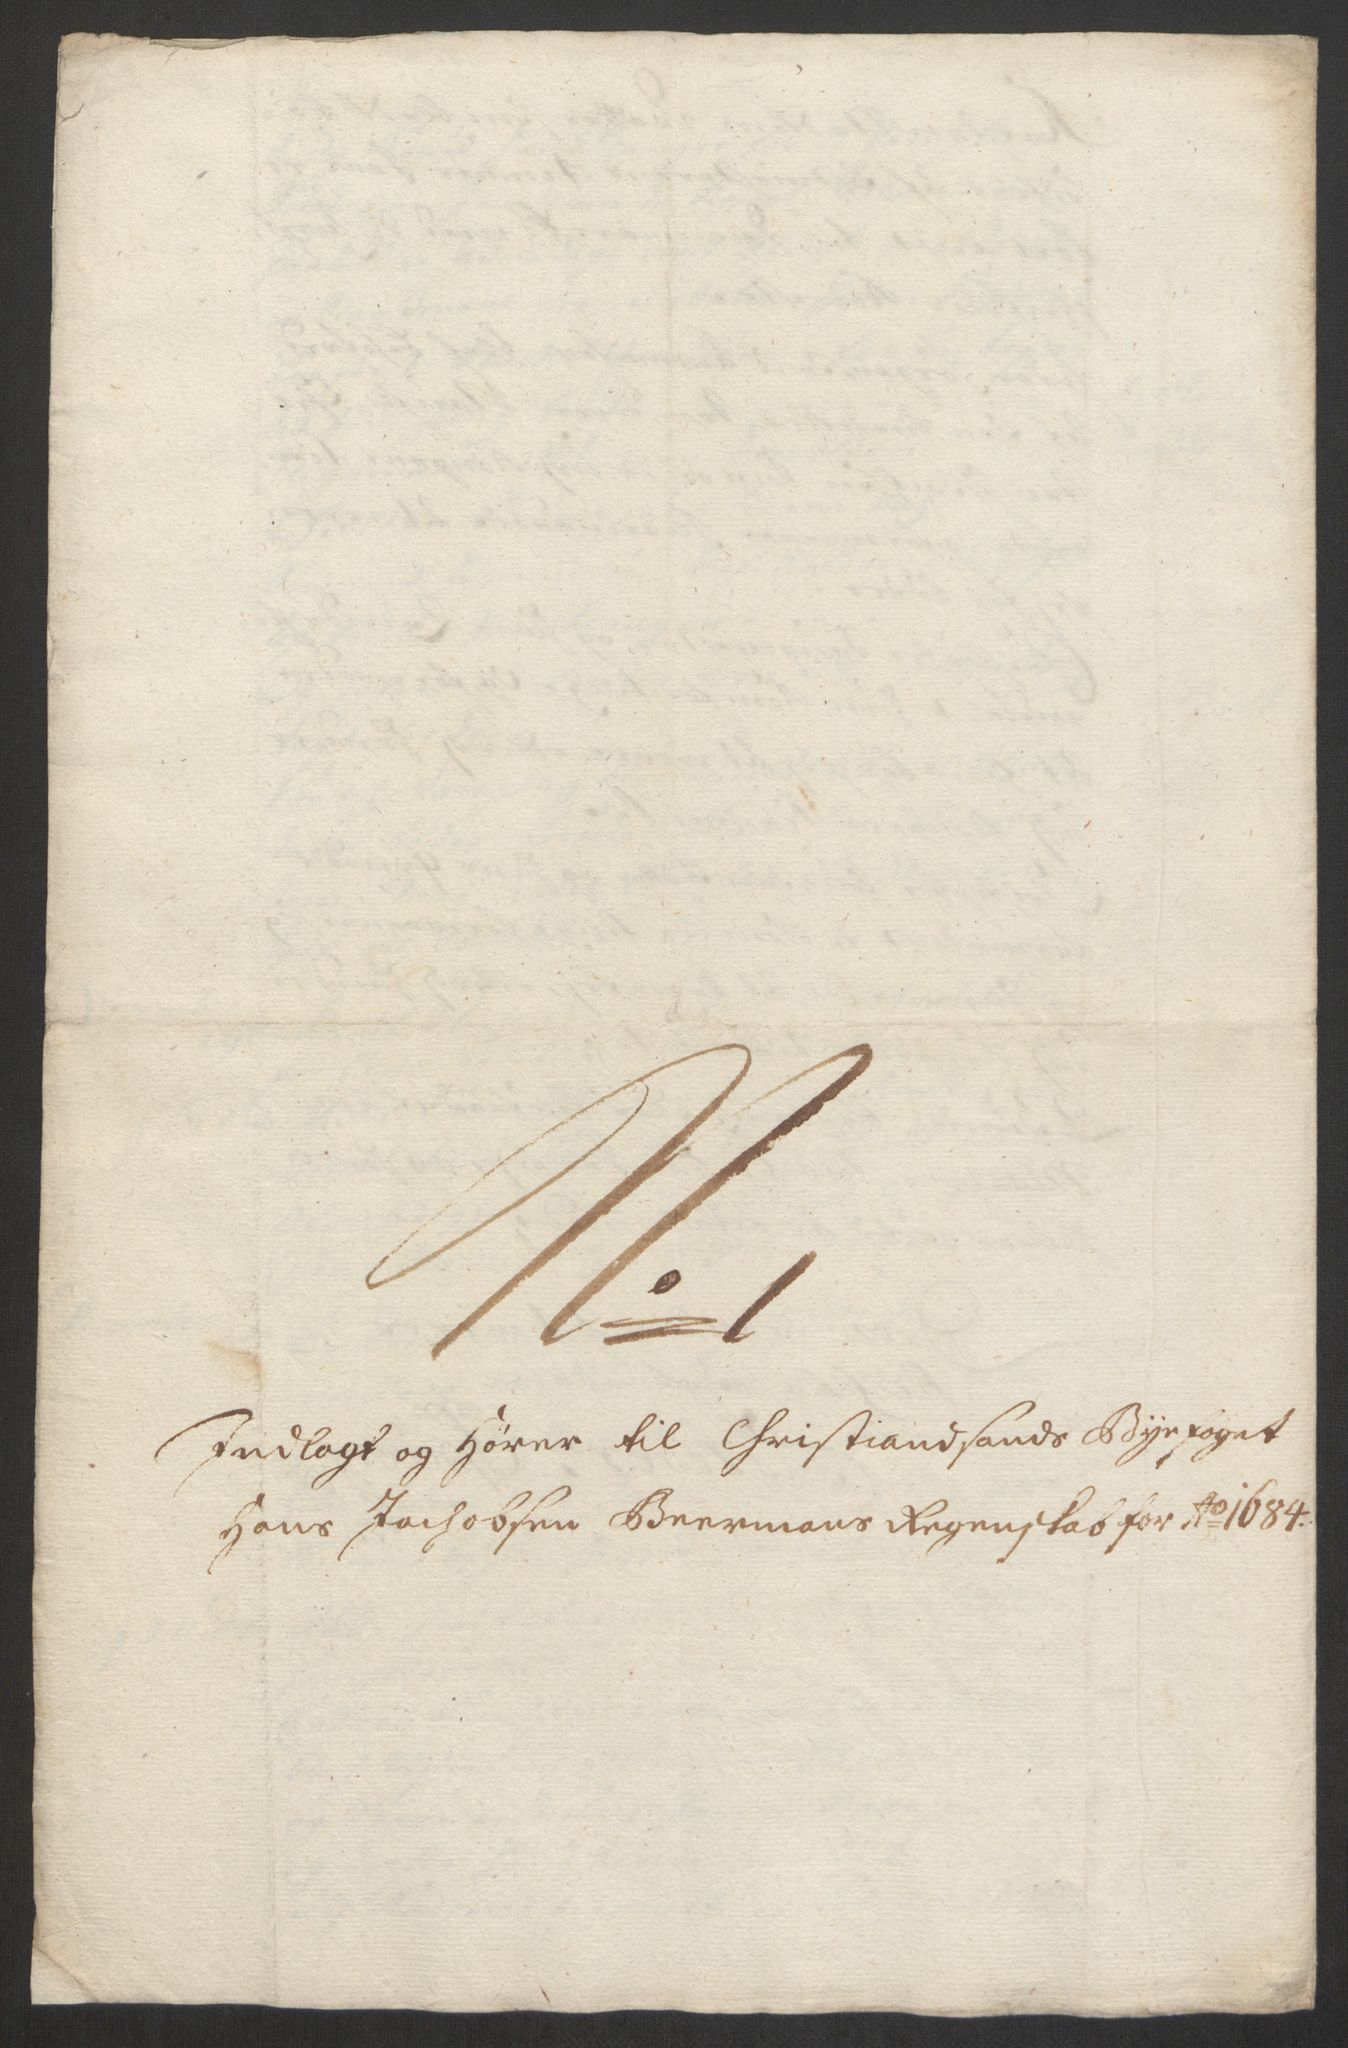 No. 1
Indlagt og Hører til Christiandsands Bÿefoget
Hans Jachobsen Beermans Regenskab for Ao 1684.